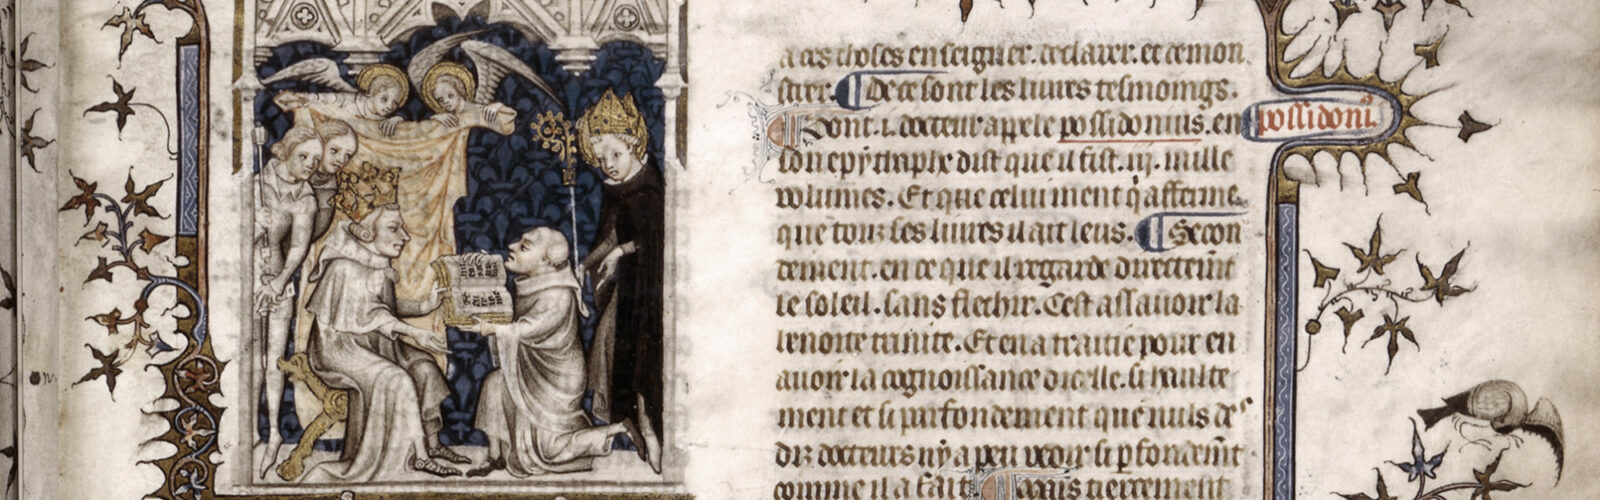 a ces choses enseigner. declarer. et demon
strer. De ce sont les livres tesmoings.
Dont .i. docteur appele possidonius. en
possidoni9
son epytaphe dist que il fist .iij. mille
volumes. Et que celui ment q̃ afferme
que touz ses livres il ait leus. Secon
dement. en ce que il regarde directem̃t
le soleil. sans flechir. Cest assavoir la
benoite trinite. Et en a traitie pour en
avoir la cognoissance dicelle. si haulte
ment et si parfondement que nuls des
diz docteurs ny a peu veoir si p̱fondem̃t
comme il a fait Mais tiercement